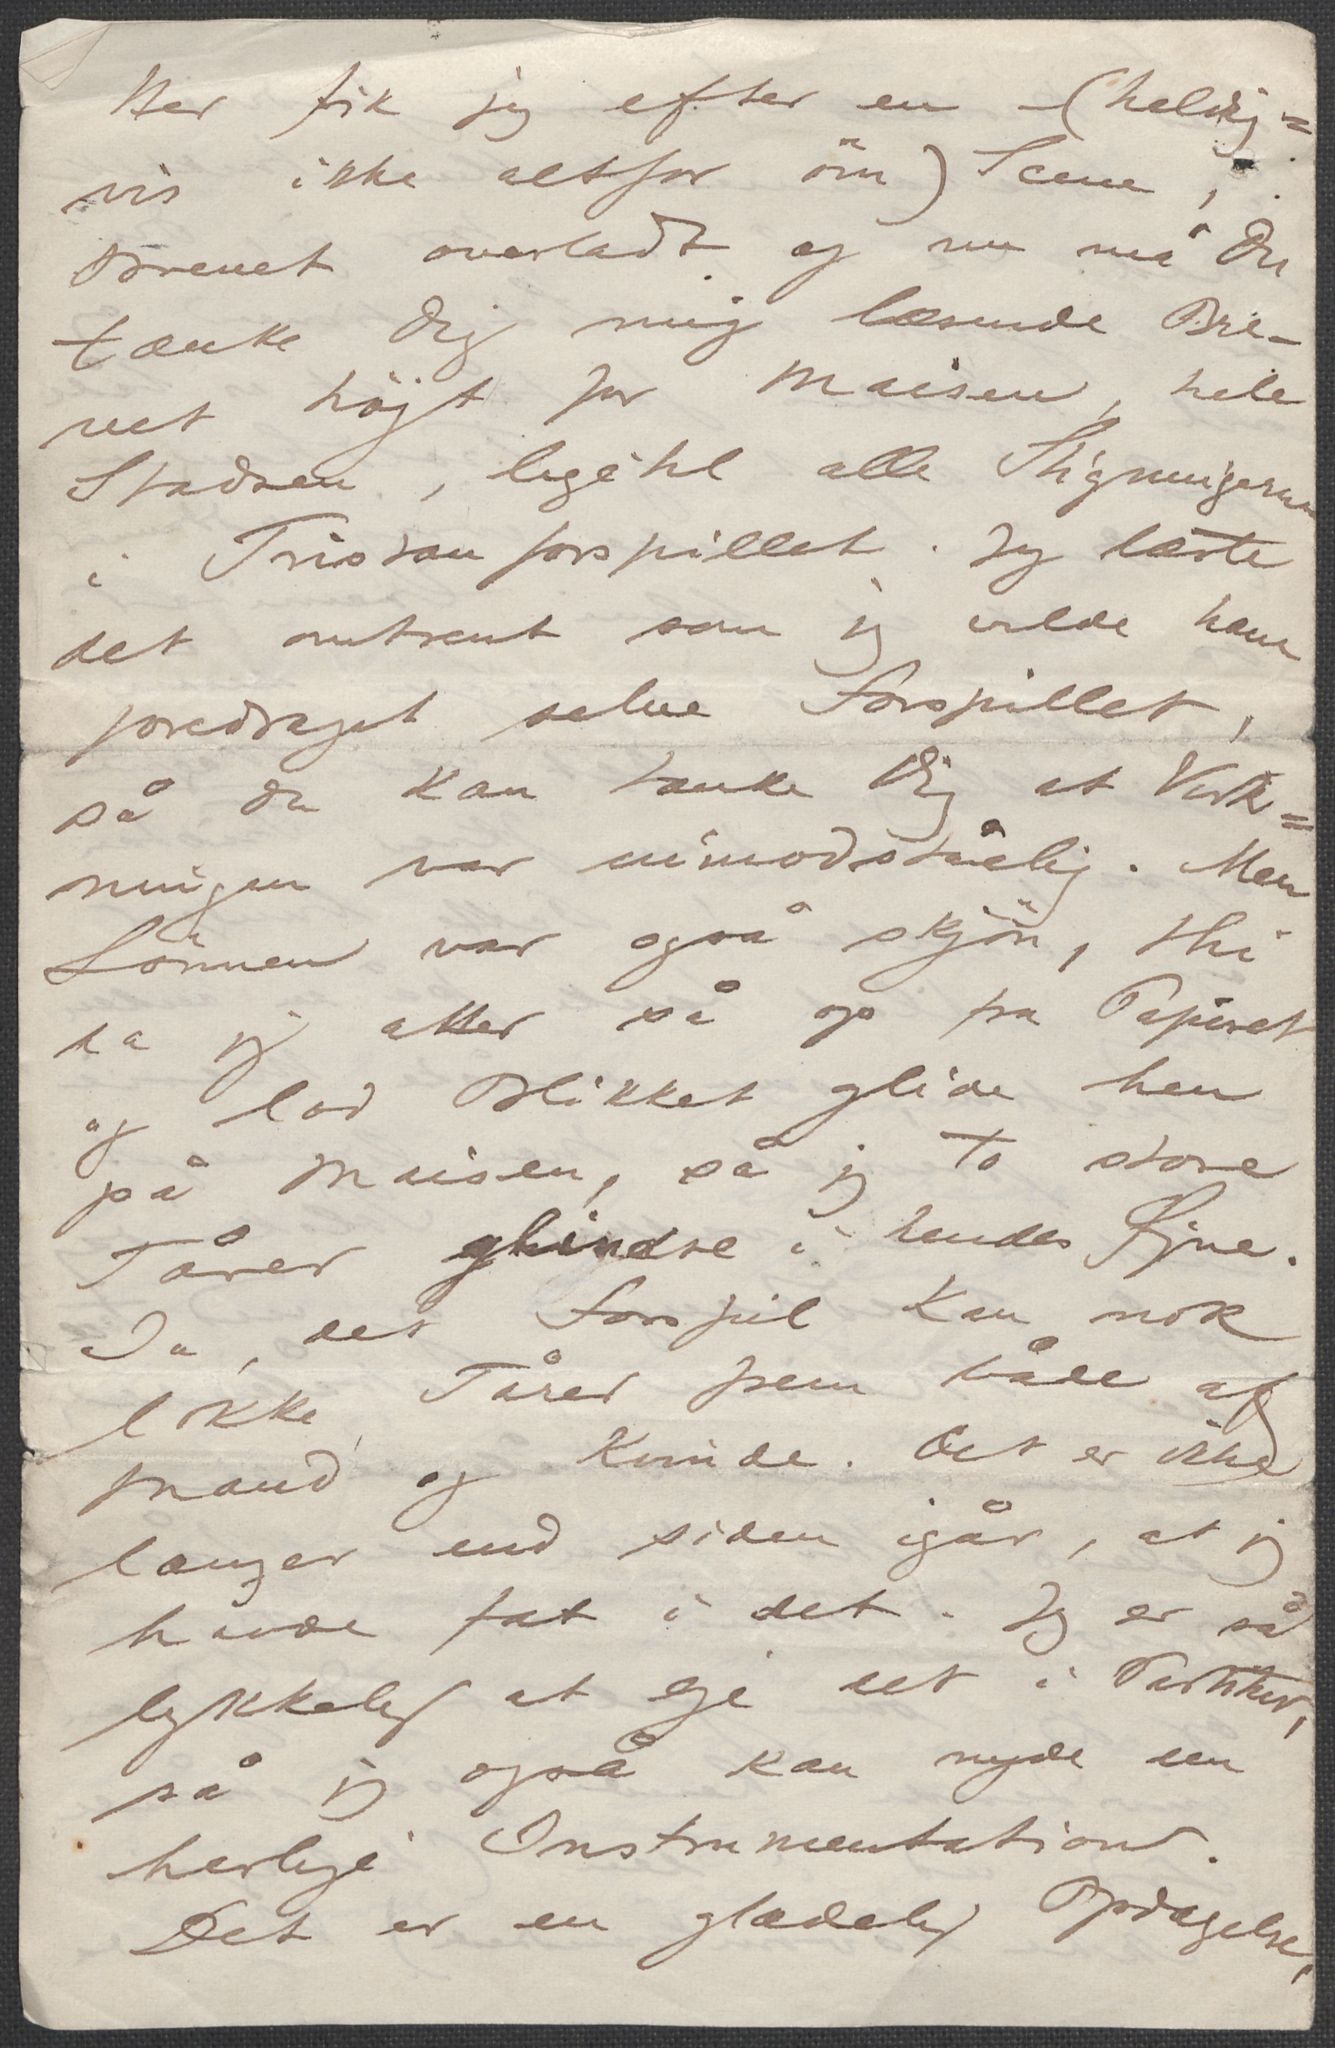 Her fik jeg efter en (heldig=
vis ikke altfor öm) Scene,
Brevet overladt og nu må Du
tænke Dig mig læsende Bre-
vet höjt for Maisen, hele
Stadsen, ligetil alle Stigningerne
i Tristanforspillet. Jeg læste
det omtrent som jeg vilde have
foredraget selve Forspillet,
så du kan tænke Dig at Virk=
ningen var uimodståelig. Men
Lönnen var også skjön, thi
da jeg atter så op fra Papiret
og lod Blikket glide hen
på Maisen, så jeg to store
Tårer glindse i hendes Øjne.
Ja, det Forspil kan nok
lokke Tårer frem både af
Mand og Kvinde. Det er ikke
længer end siden igår, at jeg
havde fat i det. Jeg er så
lykkelig at eje det i Partitur,
så jeg også kan nyde den
herlige Instrumentation.
Det er en glædelig Opdagelse,